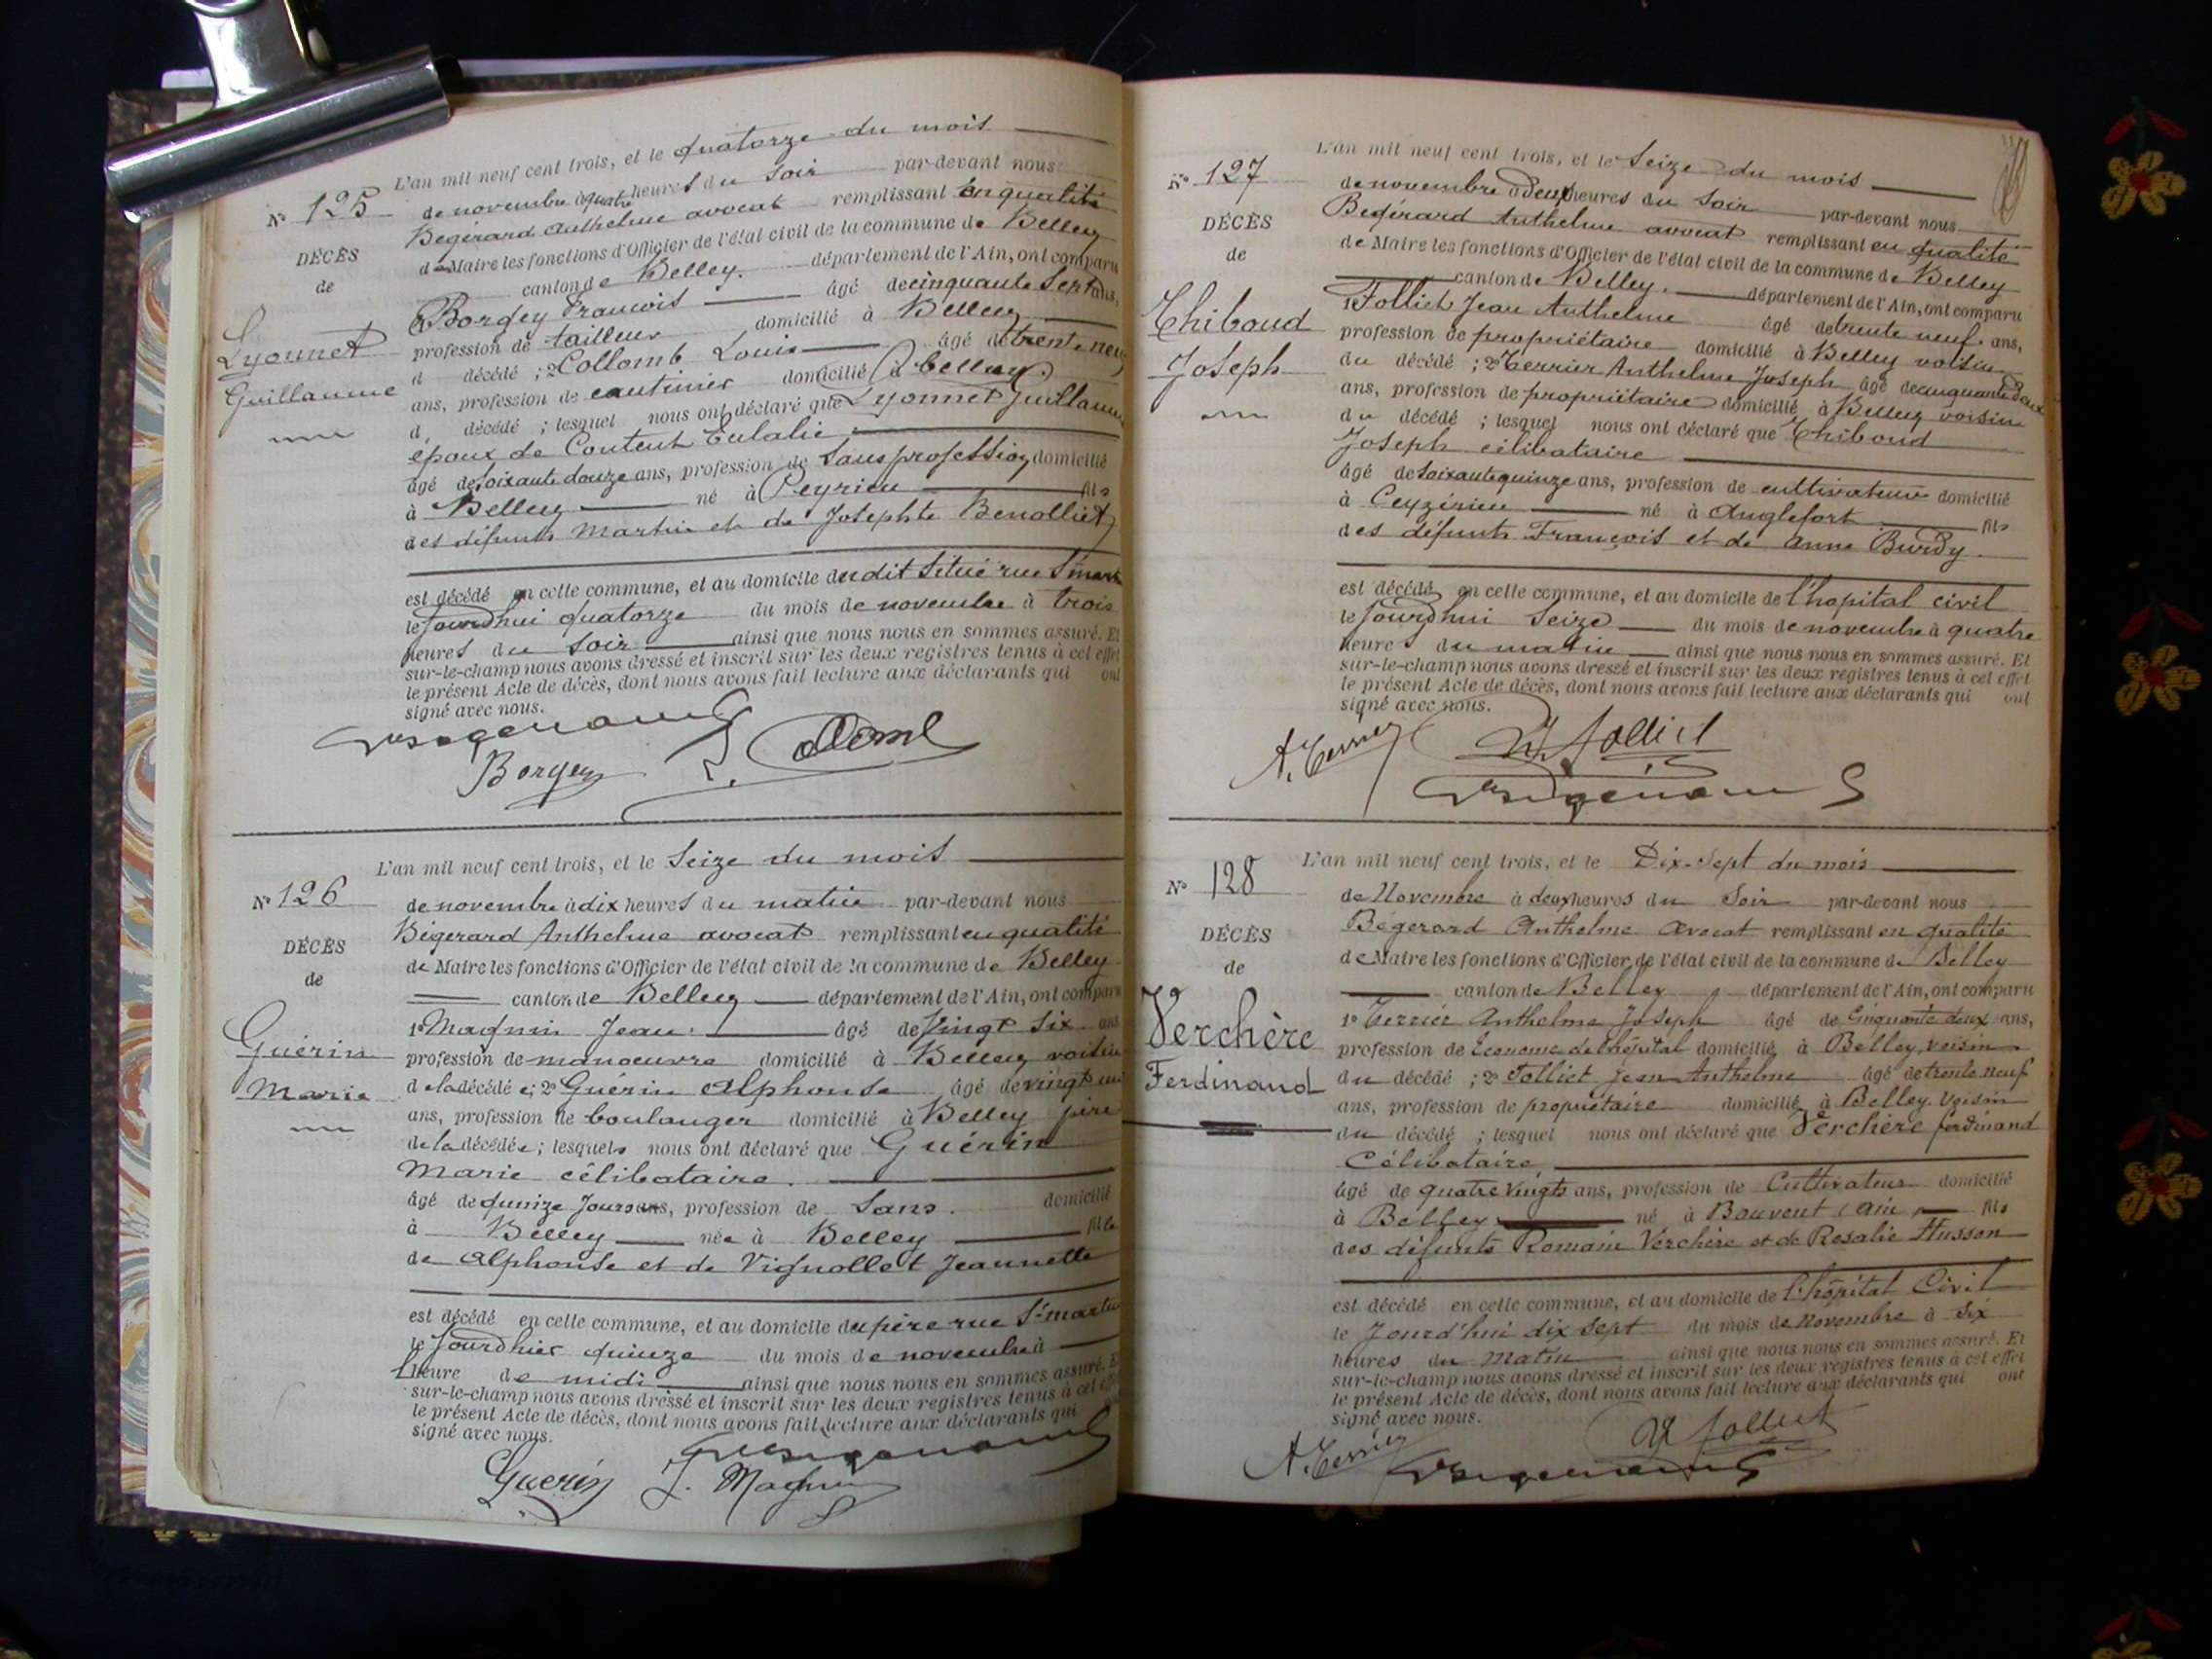 L'an mil neuf cent trois, et le quatorze du mois
N° 125
de novembre à quatre heures du Soir par-devant nous
Begerard Anthelme avocat remplissant en qualité
DÉCÈS
de Maire les fonctions d'Officier de l'état civil de la commune de Belley
de
canton de Belley. département de l'Ain, ont comparu
Borgey Francois âgé de cinquante Sept ans,
Lyonnet
profession de tailleur domicilié à Belley
Guillaume
d décédé ; 2° Collomb Louis âgé de trente neuf
ans, profession de cantinier domicilié à belley
d décédé ; lesquel nous ont déclaré que Lyonnet Guillaume
epoux de Content Eulalie
âgé de Soixante douze ans, profession de Sans profession domicilié
à Belley né à Peyrieu fils
des défunts Martin et de Josephte Benolliet
est décédé en cette commune, et au domicile du dit Situé rue St martin
le Jourdhui quatorze du mois de novembre à trois
heures du Soir ainsi que nous nous en sommes assuré. Et
sur-le-champ nous avons dressé et inscrit sur les deux registres tenus à cet effet
le présent Acte de décès, dont nous avons fait lecture aux déclarants qui ont
signé avec nous.
Borgey
L'an mil neuf cent trois, et le Seize du mois
N° 126
de novembre à dix heures du matin par-devant nous
Bégerard Anthelme avocat remplissant en qualité
DÉCÈS
de Maire les fonctions d'Officier de l'état civil de la commune de Belley
de
canton de Belley département de l'Ain, ont comparu
1° Magnin Jean âgé de Vingt Six ans
Guérin
profession de manoeuvre domicilié à Belley voisin
Marie
de la décédée ; 2° Guérin Alphonse âgé de vingt un
ans, profession de boulanger domicilié à Belley père
de la décédée ; lesquels nous ont déclaré que Guérin
Marie célibataire.
âgé de quinze Jours ans, profession de Sans. domicilié
à Belley née à Belley fille
de Alphonse et de Vignollet Jeannette
est décédé en cette commune, et au domicile du père rue St martin
le Jourdhier quinze du mois de novembre à
L'heure de midi ainsi que nous nous en sommes assuré. Et
sur-le-champ nous avons dressé et inscrit sur les deux registres tenus à cet effet
le présent Acte de décès, dont nous avons fait lecture aux déclarants qui
signé avec nous.
Guerin J. Magnin
L'an mil neuf cent trois, et le Seize du mois
N° 127
de novembre à Deux heures du Soir par-devant nous
Begérard Anthelme avocat remplissant en qualité
DÉCÈS
de Maire les fonctions d'Officier de l'état civil de la commune de Belley
de
canton de Belley. département de l'Ain, ont comparu
1° Folliet Jean Anthelme âgé de trente neuf ans,
Thiboud
profession de propriétaire domicilié à Belley voisin
Joseph
du décédé ; 2° Terrier Anthelme Joseph âgé de cinquante Deux
ans, profession de propriétaire domicilié à Belley voisin
du décédé ; lesquel nous ont déclaré que Thiboud
Joseph célibataire
âgé de Soixante quinze ans, profession de cultivateur domicilié
à Ceyzérieu né à Anglefort fils
des défunts François et de Anne Burdy.
est décédé en cette commune, et au domicile de l'hopital civil
le Jourdhui Seize du mois de novembre à quatre
heures du matin ainsi que nous nous en sommes assuré. Et
sur-le-champ nous avons dressé et inscrit sur les deux registres tenus à cet effet
le présent Acte de décès, dont nous avons fait lecture aux déclarants qui ont
signé avec nous.
A. Terrier Folliet
L'an mil neuf cent trois, et le Dix-Sept du mois
N° 128
de Novembre à deux heures du Soir par-devant nous
Bégerard Anthelme Avocat remplissant en qualité
DÉCÈS
de Maire les fonctions d'Officier de l'état civil de la commune de Belley
de
canton de Belley département de l'Ain, ont comparu
1° Terrier Anthelme Joseph âgé de Cinquante deux ans,
Verchère
profession de Econome de l'hôpital domicilié à Belley, voisin
Ferdinand
du décédé ; 2° Folliet Jean Anthelme âgé de trente neuf
ans, profession de propriétaire domicilié à Belley. Voisin
du décédé ; lesquel nous ont déclaré que Verchère ferdinand
Célibataire
âgé de quatre Vingts ans, profession de Cultivateur domicilié
à Belley né à Bouvent (Ain) fils
des défunts Romain Verchère et de Rosalie Husson
est décédé en cette commune, et au domicile de l'hôpital Civil
le Jourd'hui dix Sept du mois de Novembre à Six
heures du Matin ainsi que nous nous en sommes assuré. Et
sur-le-champ nous avons dressé et inscrit sur les deux registres tenus à cet effet
le présent Acte de décès, dont nous avons fait lecture aux déclarants qui ont
signé avec nous.
A. Terrier Folliet